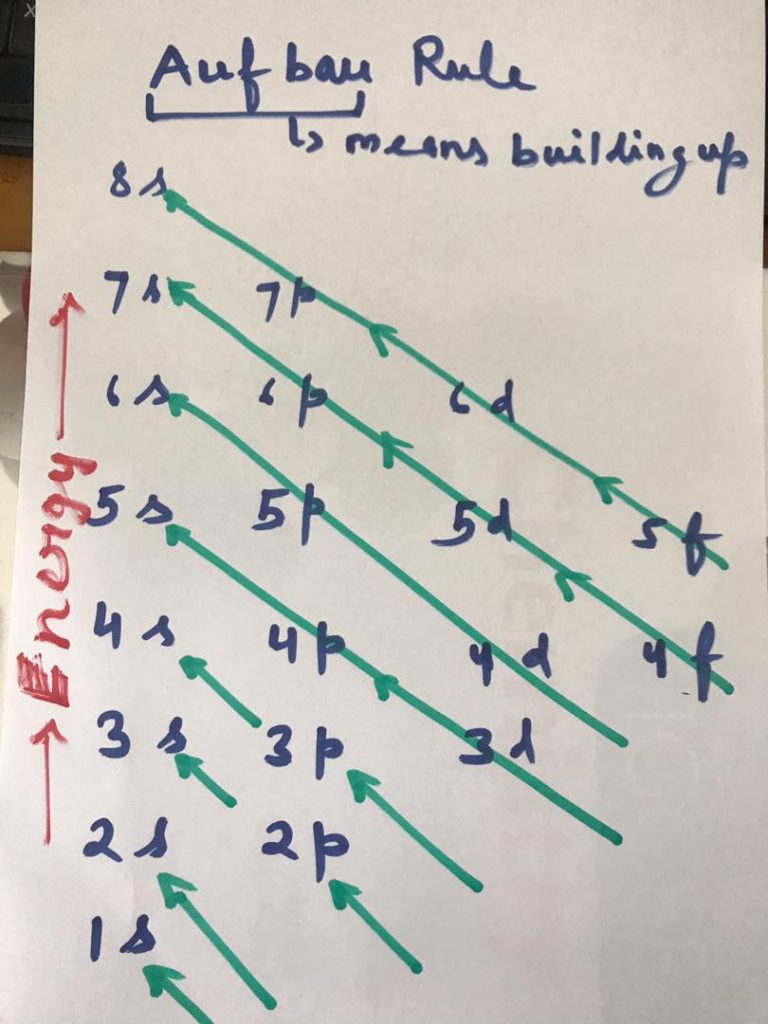 Aufbau Rule
↳ means building up
8s
7s 7p
6s 6p 6d
5s 5p 5d 5f
4s 4p 4d 4f
3s 3p 3d
2s 2p
1s
Energy